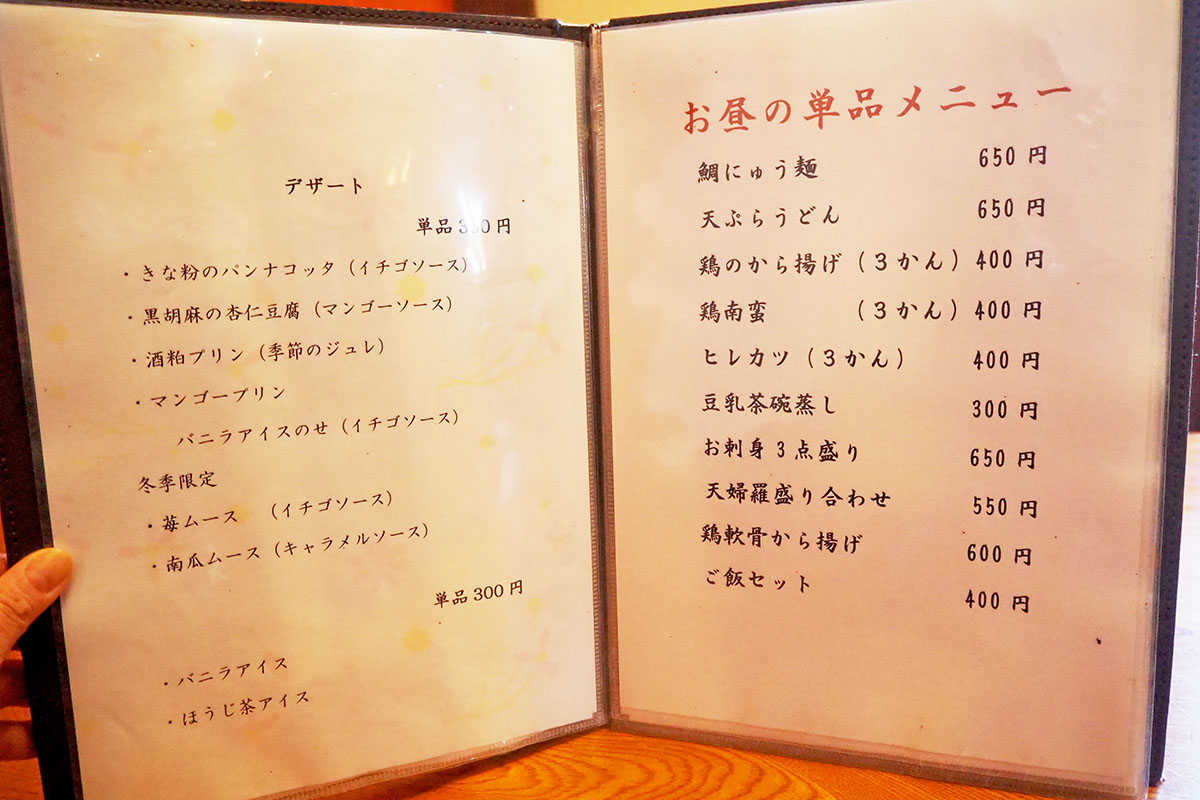 デザート
単品
・きな粉のパンナコッタ（イチゴソース）
・黒胡麻の杏仁豆腐（マンゴーソース）
・酒粕プリン（季節のジュレ）
・マンゴープリン
バニラアイスのせ（イチゴソース）
冬季限定
・苺ムース　（イチゴソース）
・南瓜ムース（キャラメルソース）
単品300円
・バニラアイス
・ほうじ茶アイス
お昼の単品メニュー
鯛にゅう麺 650円
天ぷらうどん 650円
鶏のから揚げ（３かん）400円
鶏南蛮　　　（３かん）400円
ヒレカツ（３かん） 400円
豆乳茶碗蒸し 300円
お刺身3点盛り 650円
天婦羅盛り合わせ 550円
鶏軟骨から揚げ 600円
ご飯セット 400円